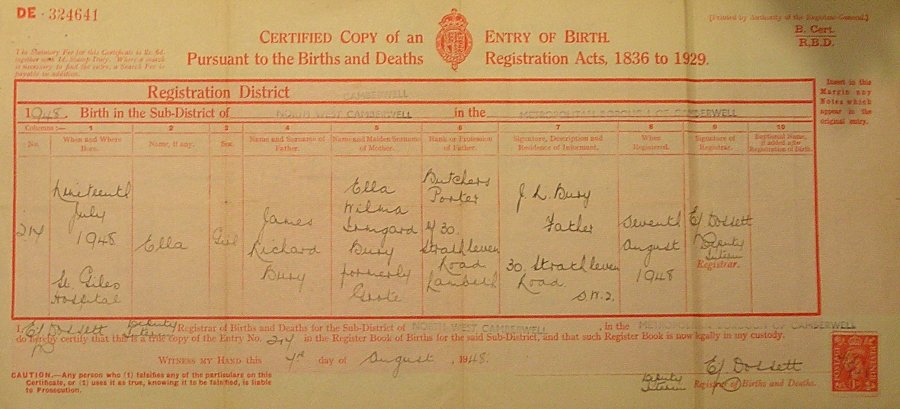 DE · 324641
[Printed by Authority of the Registrar-General.]
B. Cert.
R.B.D.
CERTIFIED COPY OF AN ENTRY OF BIRTH.
Pursuant to the Births and Deaths Registration Acts, 1836 to 1929.
The Statutory Fee for this Certificate is
together with 1d. Stamp Duty. Where a search
is necessary to find the entry, a Search Fee is
payable in addition.
Insert in this
Margin any
Notes which
appear in the
original entry.
Registration District CAMBERWELL
1948. Birth in the Sub-District of NORTH WEST CAMBERWELL in the METROPOLITAN BOROUGH OF CAMBERWELL
Columns :— 1 2 3 4 5 6 7 8 9 10
No. When and Where Born. Name, if any. Sex. Name and Surname of Father. Name and Maiden Surname of Mother. Rank or Profession of Father. Signature, Description and Residence of Informant. When Registered. Signature of Registrar. Baptismal Name, if added after Registration of Birth.
214
Nineteenth
July
1948
St. Giles
Hospital
Ella
Girl
James
Richard
Bury
Ella
Wilma
Irmgard
Bury
formerly
Grote
Butchers
Porter
of 30.
Strathleven
Road
Lambeth
J. L. Bury
Father
30. Strathleven
Road.
S.W.2.
Seventh
August
1948
E J Dossett
Deputy
Interim
Registrar.
I, E J Dossett Deputy Interim Registrar of Births and Deaths for the Sub-District of NORTH WEST CAMBERWELL, in the METROPOLITAN BOROUGH OF CAMBERWELL
do hereby certify that this is a true copy of the Entry No. 214 in the Register Book of Births for the said Sub-District, and that such Register Book is now legally in my custody.
WITNESS MY HAND this day of August, 1948.
CAUTION.—Any person who (1) falsifies any of the particulars on this
Certificate, or (2) uses it as true, knowing it to be falsified, is liable
to Prosecution.
E J Dossett
Deputy Interim Registrar of Births and Deaths.
POSTAGE
REVENUE